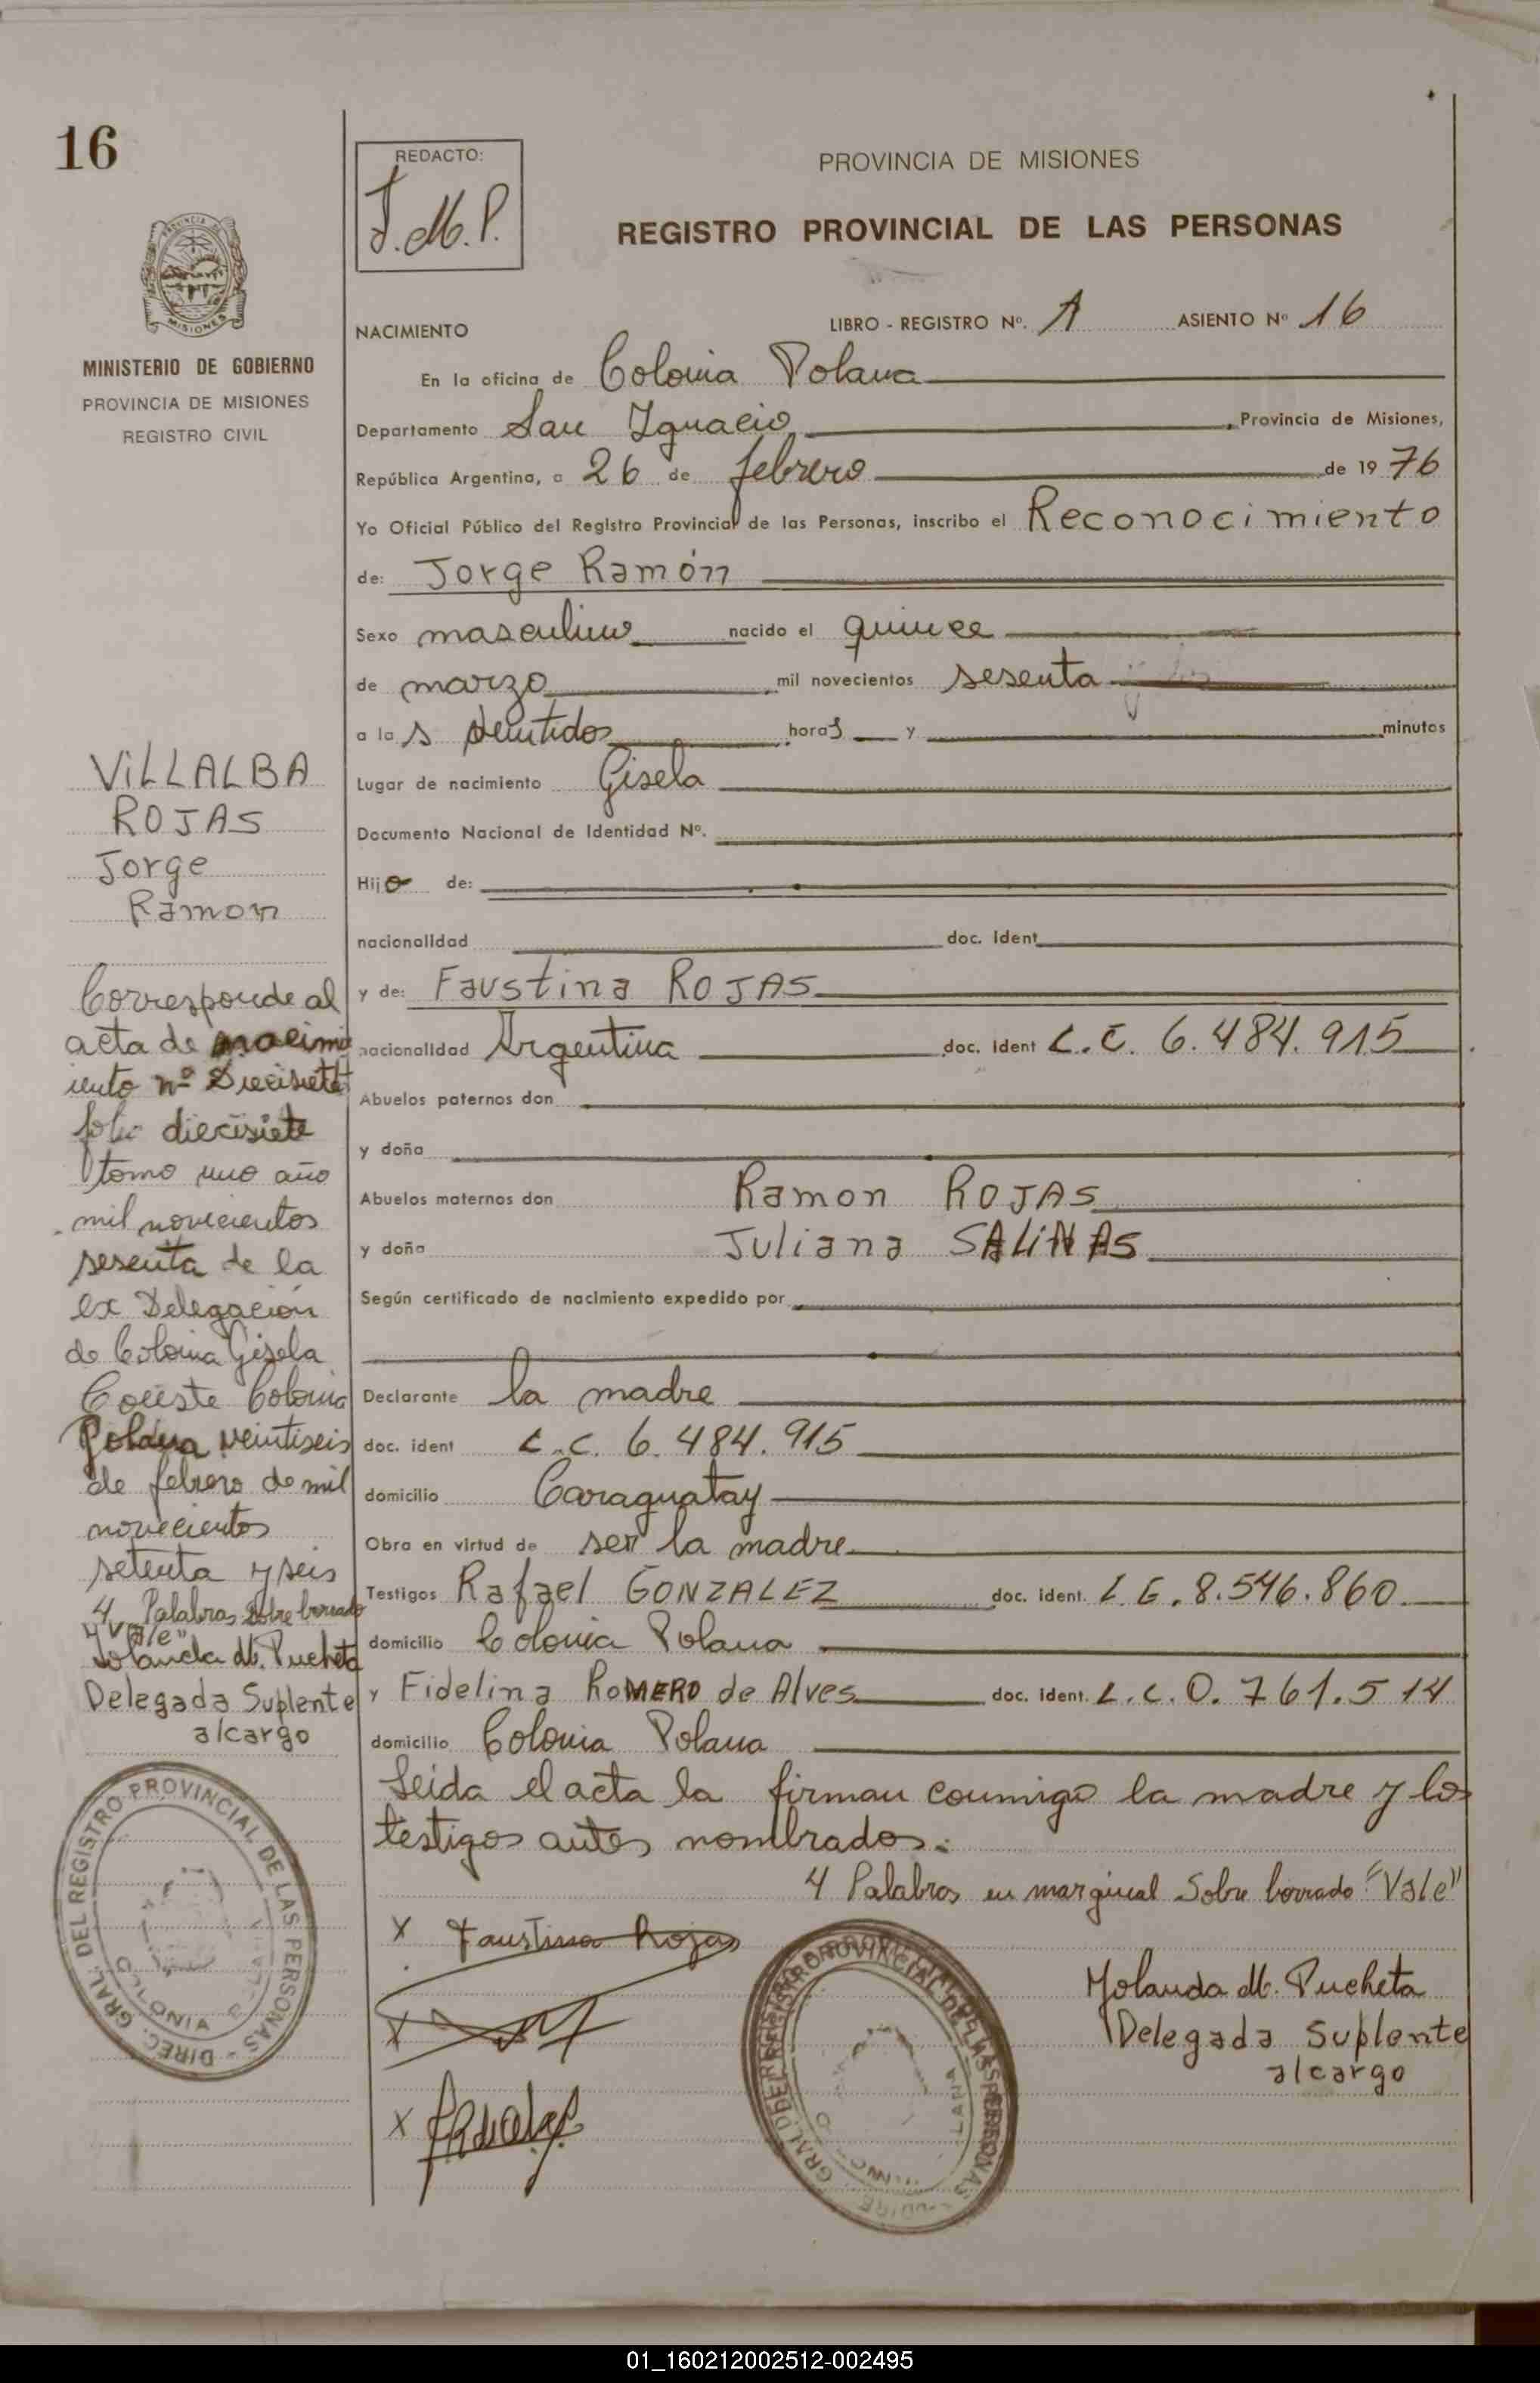 16
REDACTO:
J.M.P.
PROVINCIA DE MISIONES
REGISTRO PROVINCIAL DE LAS PERSONAS
PROVINCIA
MISIONES
MINISTERIO DE GOBIERNO
PROVINCIA DE MISIONES
REGISTRO CIVIL
NACIMIENTO LIBRO - REGISTRO Nº. A ASIENTO Nº 16
En la oficina de Colonia Polana
Departamento San Ignacio, Provincia de Misiones,
República Argentina, a 26 de febrero de 1976
Yo Oficial Público del Registro Provincial de las Personas, inscribo el Reconocimiento
de: Jorge Ramón
Sexo masculino nacido el quince
de marzo mil novecientos sesenta
a las veintidos horas y minutos
Lugar de nacimiento Gisela
Documento Nacional de Identidad Nº.
Hijo de:
nacionalidad doc. ident
y de: Faustina ROJAS
nacionalidad Argentina doc. ident L.C. 6.484.915
Abuelos paternos don
y doña
Abuelos maternos don Ramon ROJAS
y doña Juliana SALINAS
Según certificado de nacimiento expedido por
Declarante la madre
doc. ident L.C. 6.484.915
domicilio Caraguatay
Obra en virtud de ser la madre
Testigos Rafael GONZALEZ doc. ident. L.E. 8.546.860.
domicilio Colonia Polana
y Fidelina ROMERO de Alves doc. ident. L.C. 0.761.514
domicilio Colonia Polana
Leida el acta la firman conmigo la madre y los
testigos antes nombrados.
4 Palabras en marginal sobre borrado "Vale"
x Faustina Rojas
x
x
Yolanda M. Pucheta
Delegada Suplente
alcargo
VILLALBA
ROJAS
Jorge
Ramon
Corresponde al
acta de nacimi
iento nº Diecisiete
folio diecisiete
tomo uno año
mil novecientos
sesenta de la
ex Delegación
de Colonia Gisela
Conste Colonia
Polana veintiseis
de febrero de mil
novecientos
setenta y seis
4 Palabras sobre borrado
"Vale"
Yolanda M. Pucheta
Delegada Suplente
alcargo
DIREC. GRAL. DEL REGISTRO PROVINCIAL DE LAS PERSONAS
COLONIA
01_160212002512-002495